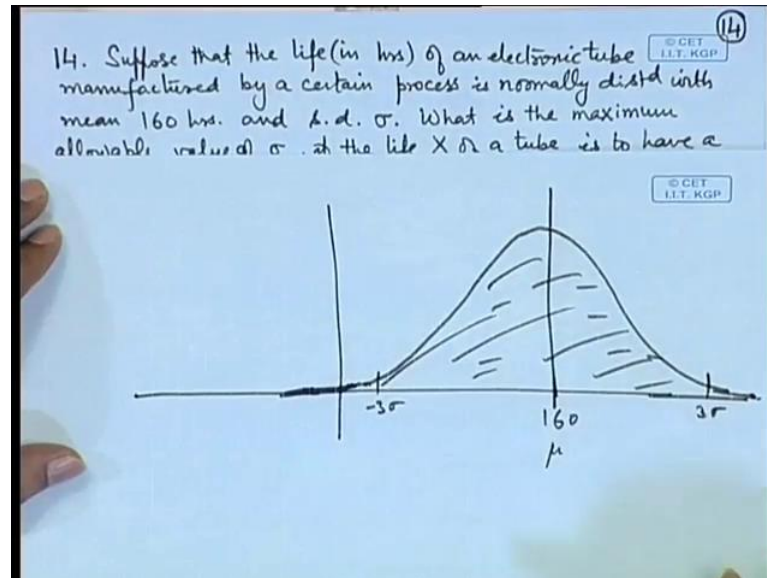 14
© CET
I.I.T. KGP
14. Suppose that the life (in hrs) of an electronic tube
manufactured by a certain process is normally distd with
mean 160 hrs. and s.d. σ. What is the maximum
allowable value of σ the life X of a tube is to have a
© CET
I.I.T. KGP
-3σ
160
3σ
μ